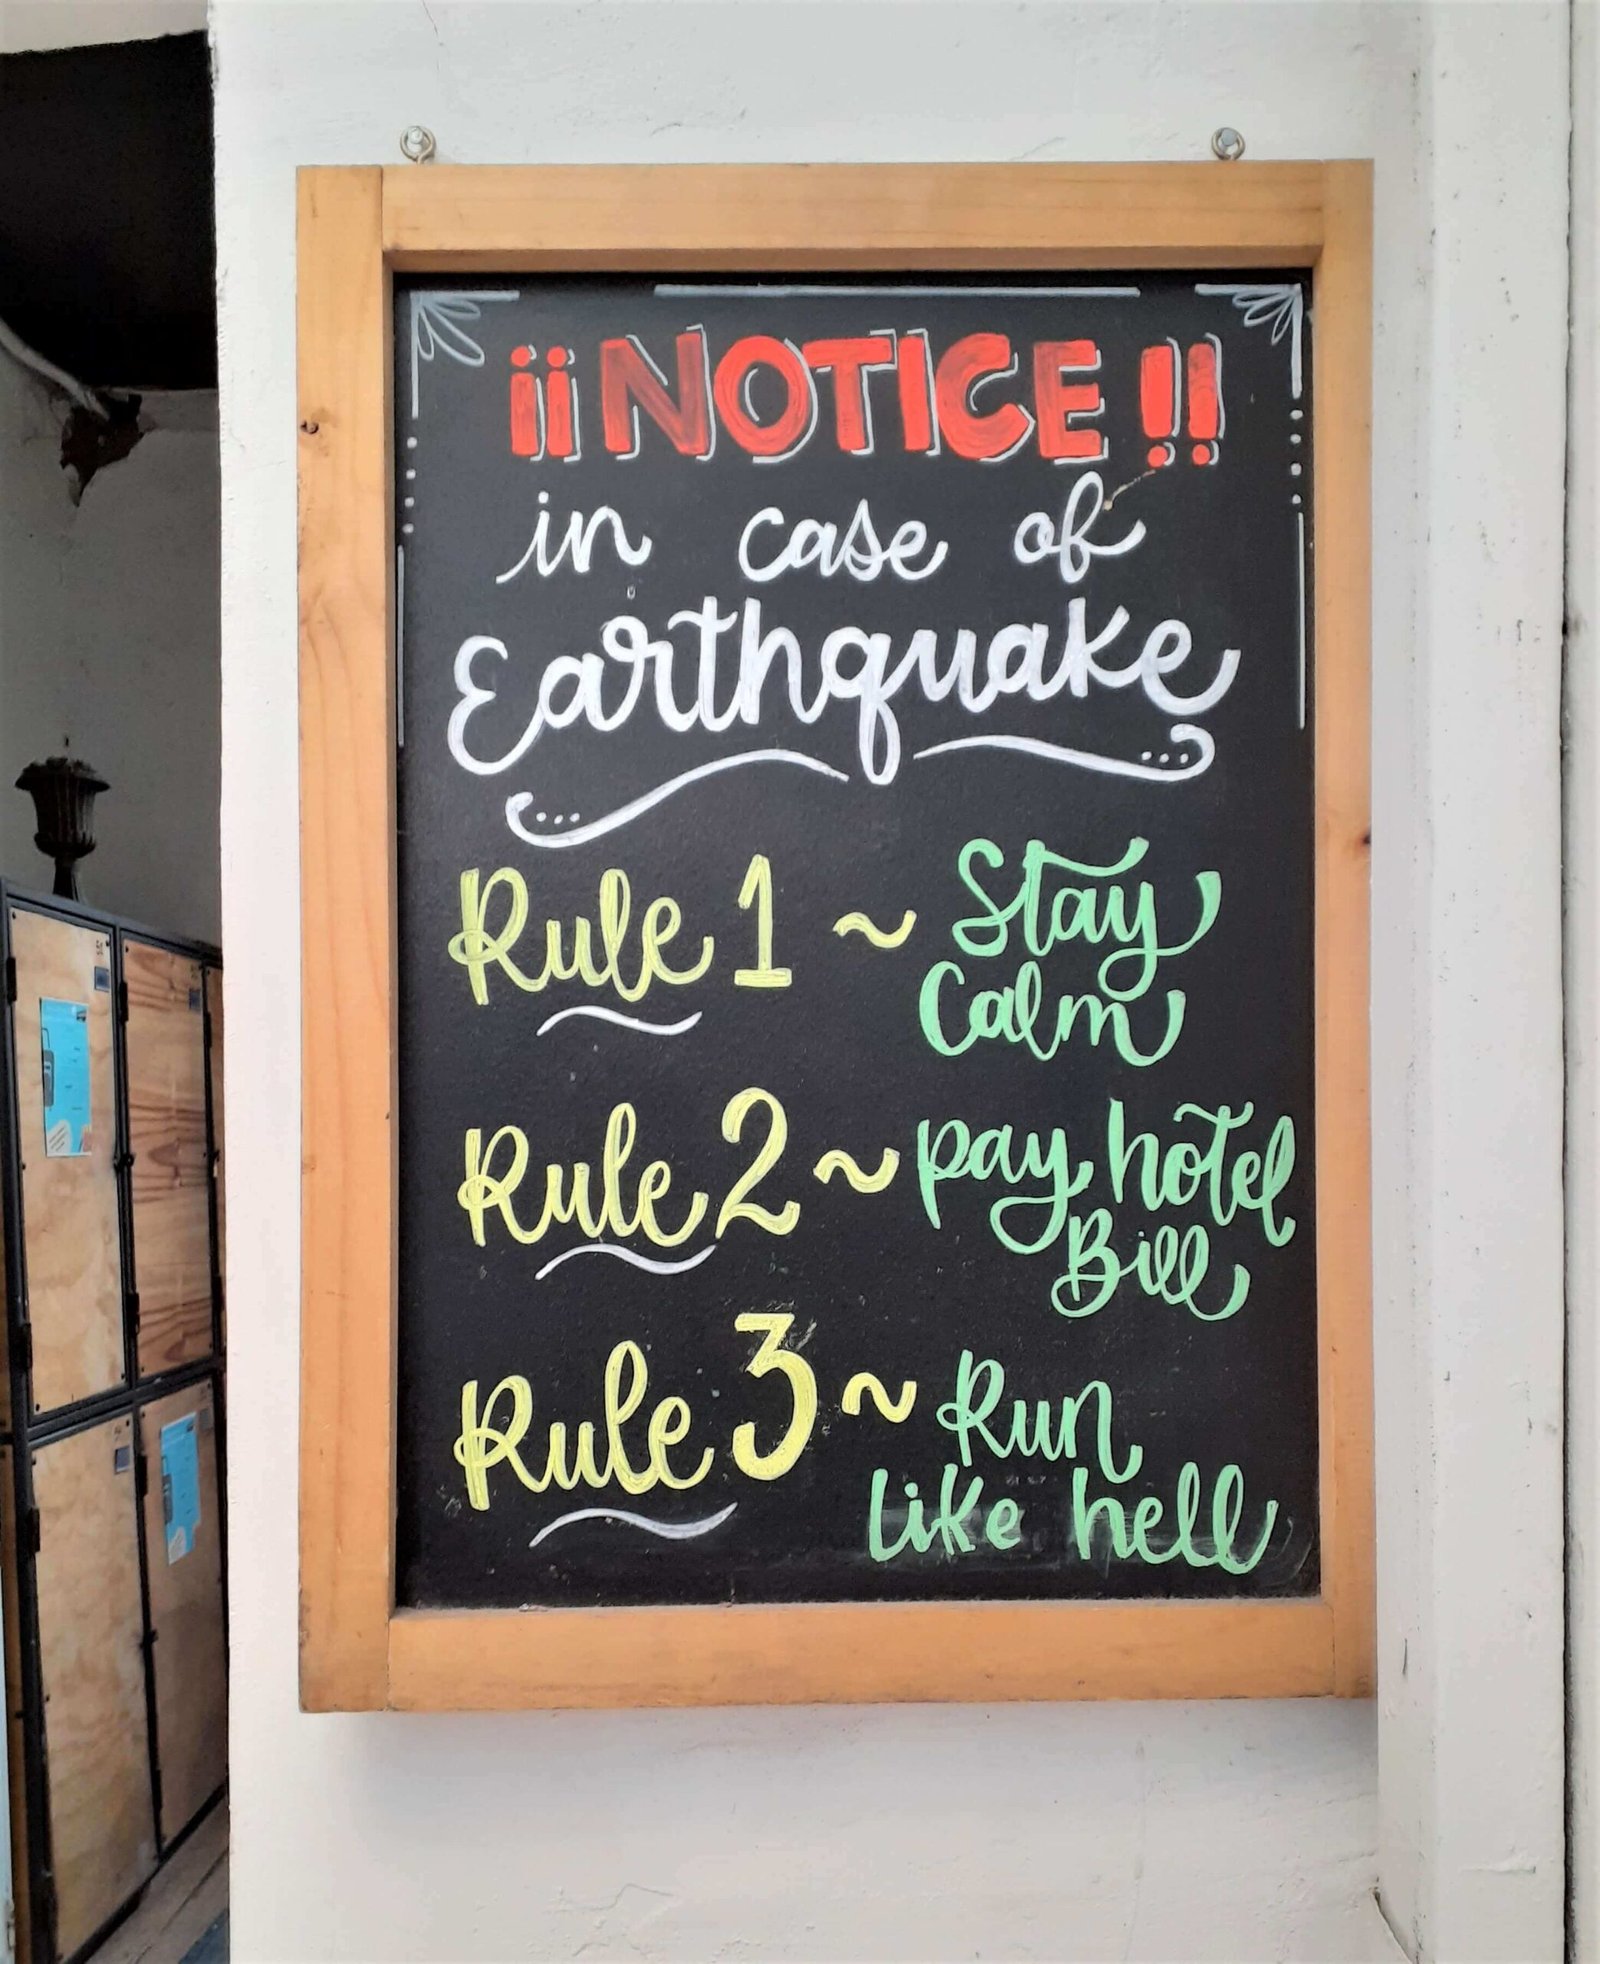 ¡¡NOTICE!!
in case of
Earthquake
Rule 1 ~ Stay
Calm
Rule 2 ~ pay hotel
Bill
Rule 3 ~ Run
Like hell